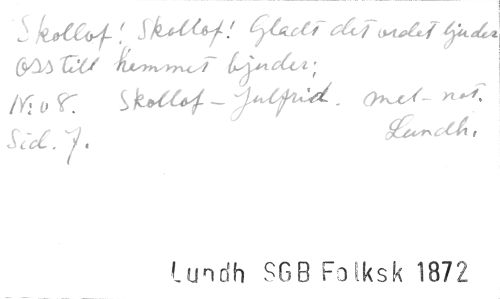 Skollof! Skollof! Gladt det ordet ljuder
oss till hemmet bjuder;
N:o 8. Skollof – Julfrid. mel-not.
Sid. 7. Lundh.
Lundh SGB Folksk 1872